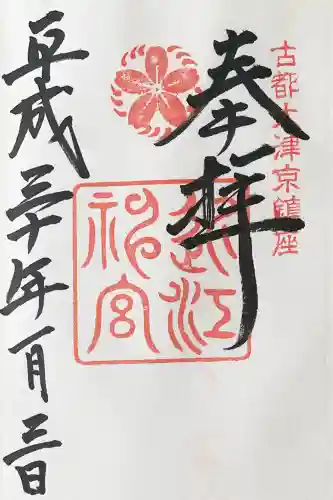 古都大津京鎮座
奉拝
近江
神宮
平成三十年一月三日